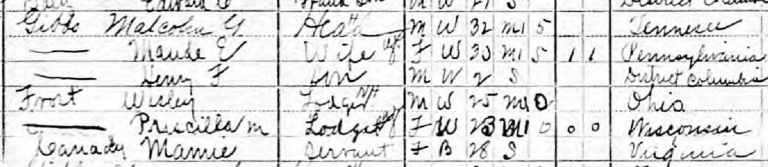 Edward
Gibbs Malcolm G Head M W 32 M1 5 Tennessee
— Maude E Wife F W 30 M1 5 1 1 Pennsylvania
— Henry F Son M W 2 S District Columbia
Frost Wesley Lodger M W 25 M1 0 Ohio
— Priscilla M Lodger F W 23 M1 0 0 0 Wisconsin
Canady Mamie Servant F B 28 S Virginia